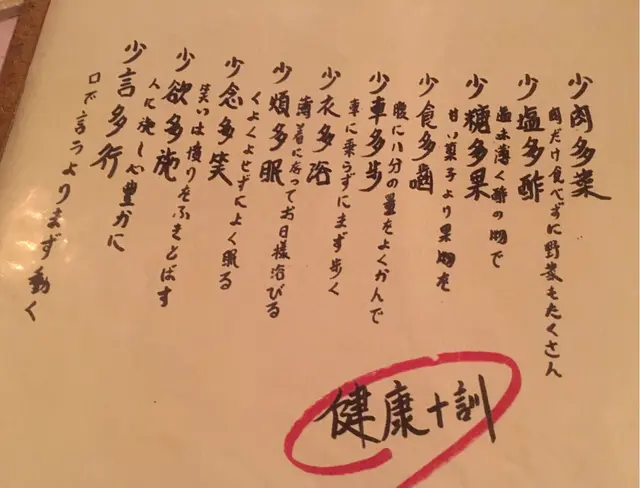 少肉多菜
肉だけ食べずに野菜もたくさん
少塩多酢
塩は薄く酢の物で
少糖多果
甘い菓子より果物を
少食多齒
腹に八分の量をよくかんで
少車多歩
車に乗らずにまず歩く
少衣多浴
薄着になってお日様浴びる
少煩多眠
くよくよせずによく眠る
少念多笑
笑いは憤りをふきとばす
少欲多施
人に施し心豊かに
少言多行
口で言うよりまず動く
健康十訓